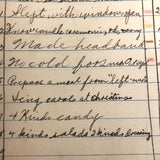 Slept with windows open
Know candle ceremony
Made headband
No cold for
Prepare a meal from "left overs"
Sing carols at christmas
4 Kinds candy
4 kinds salads 2 kinds dressing